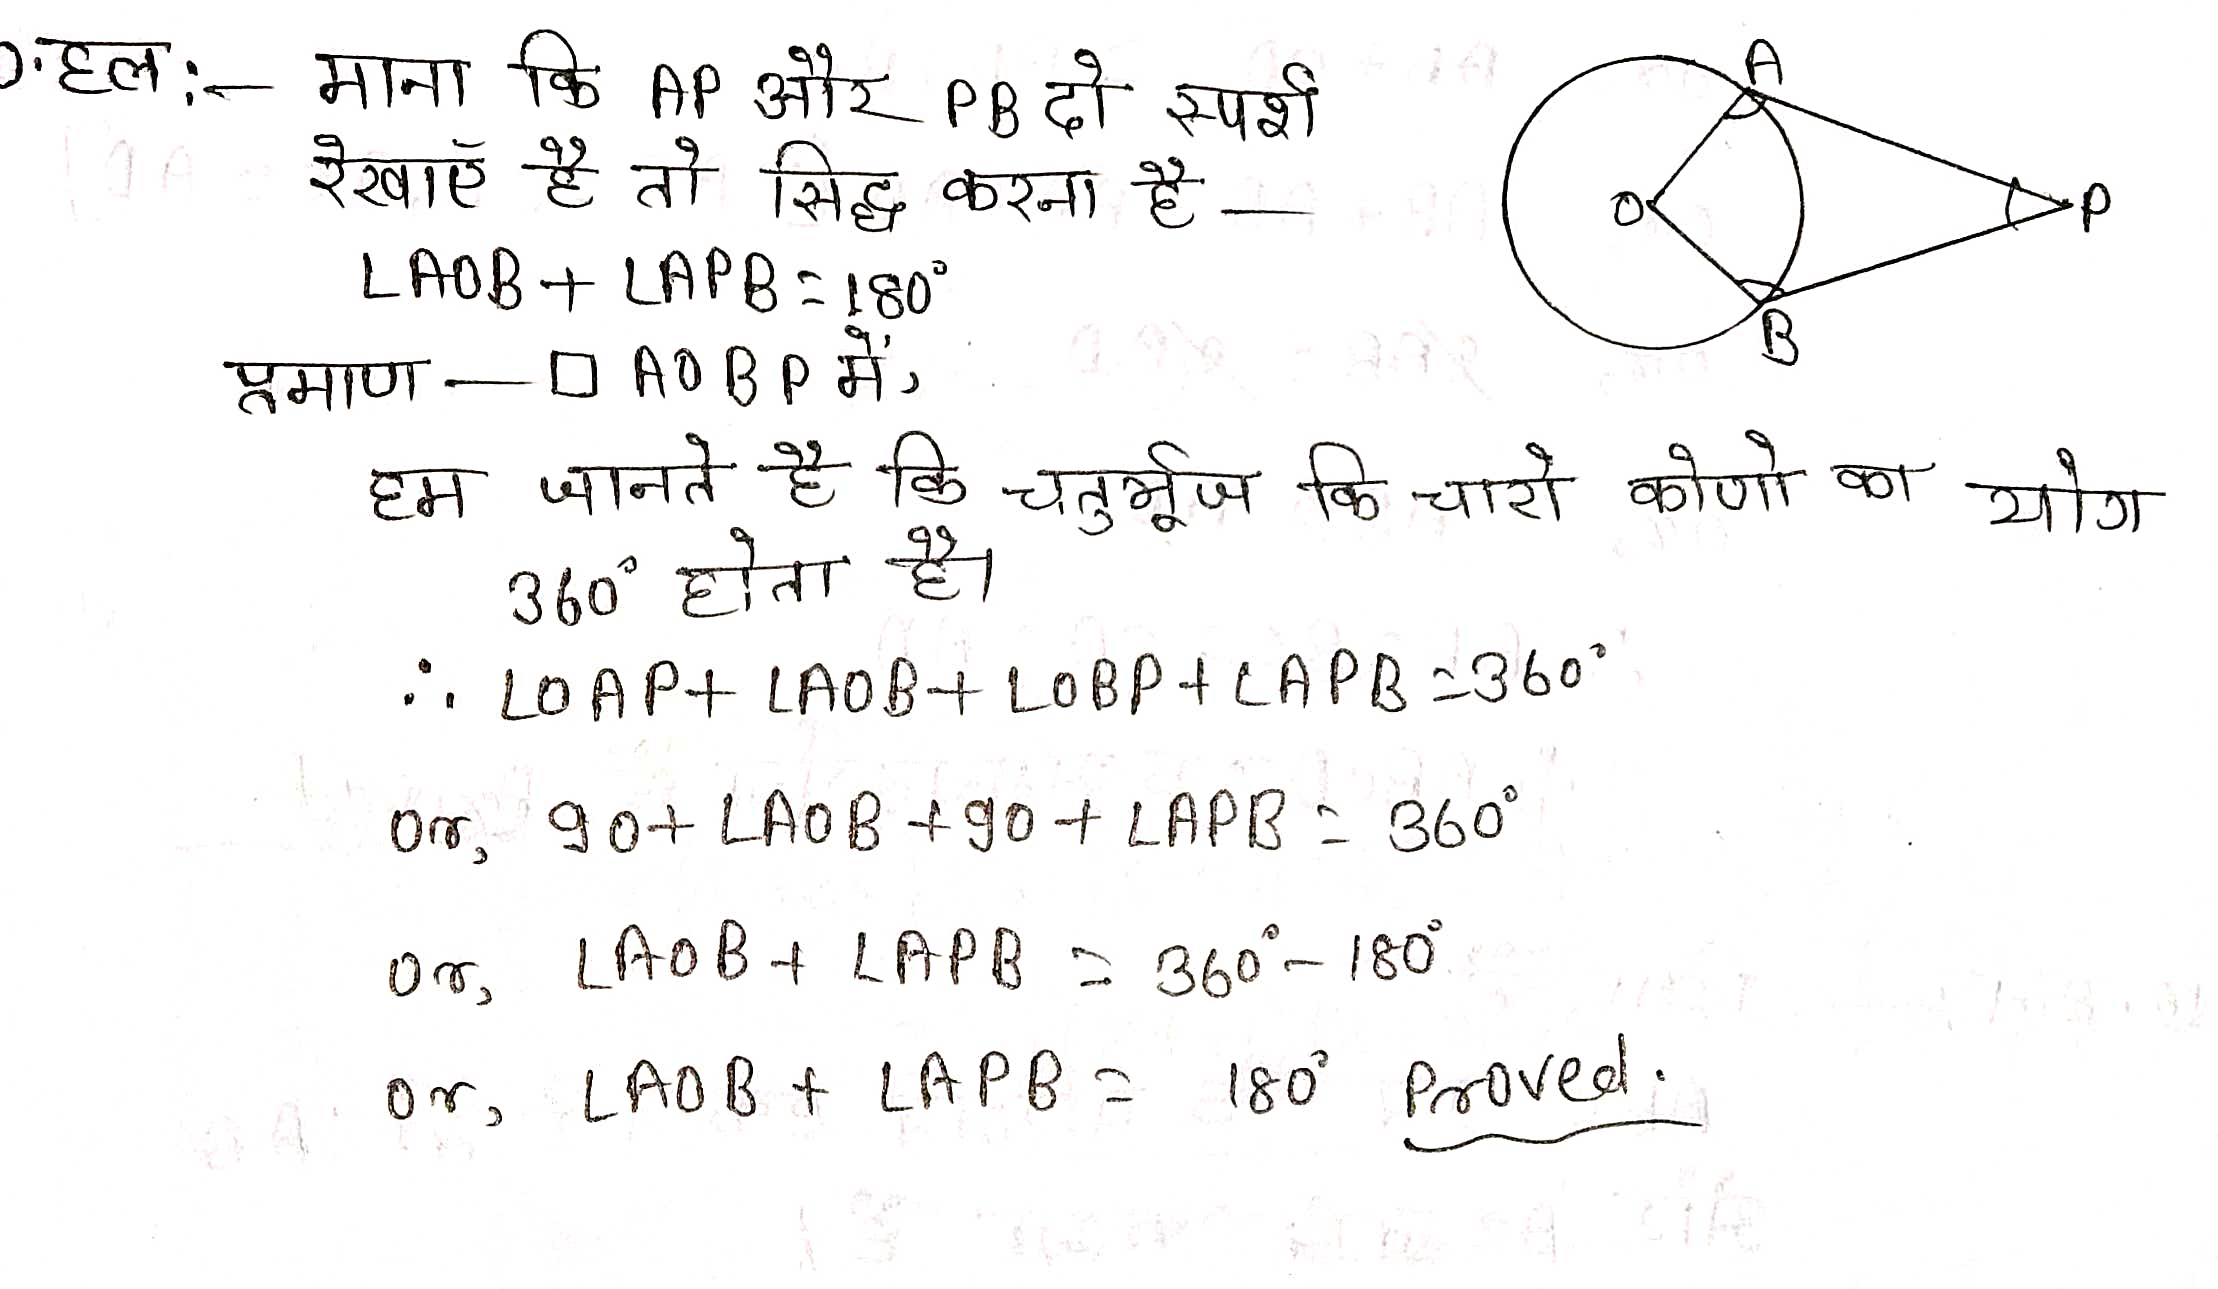 हल :- माना कि AP और PB दो स्पर्श
रेखाएँ है तो सिद्ध करना है —
∠AOB + ∠APB = 180°
प्रमाण — □ AOBP में,
हम जानते है कि चतुर्भूज कि चारो कोणो का योग
360° होता है।
∴ ∠OAP + ∠AOB + ∠OBP + ∠APB = 360°
or, 90 + ∠AOB + 90 + ∠APB = 360°
or, ∠AOB + ∠APB = 360° - 180°
or, ∠AOB + ∠APB = 180° Proved.
A
O
P
B